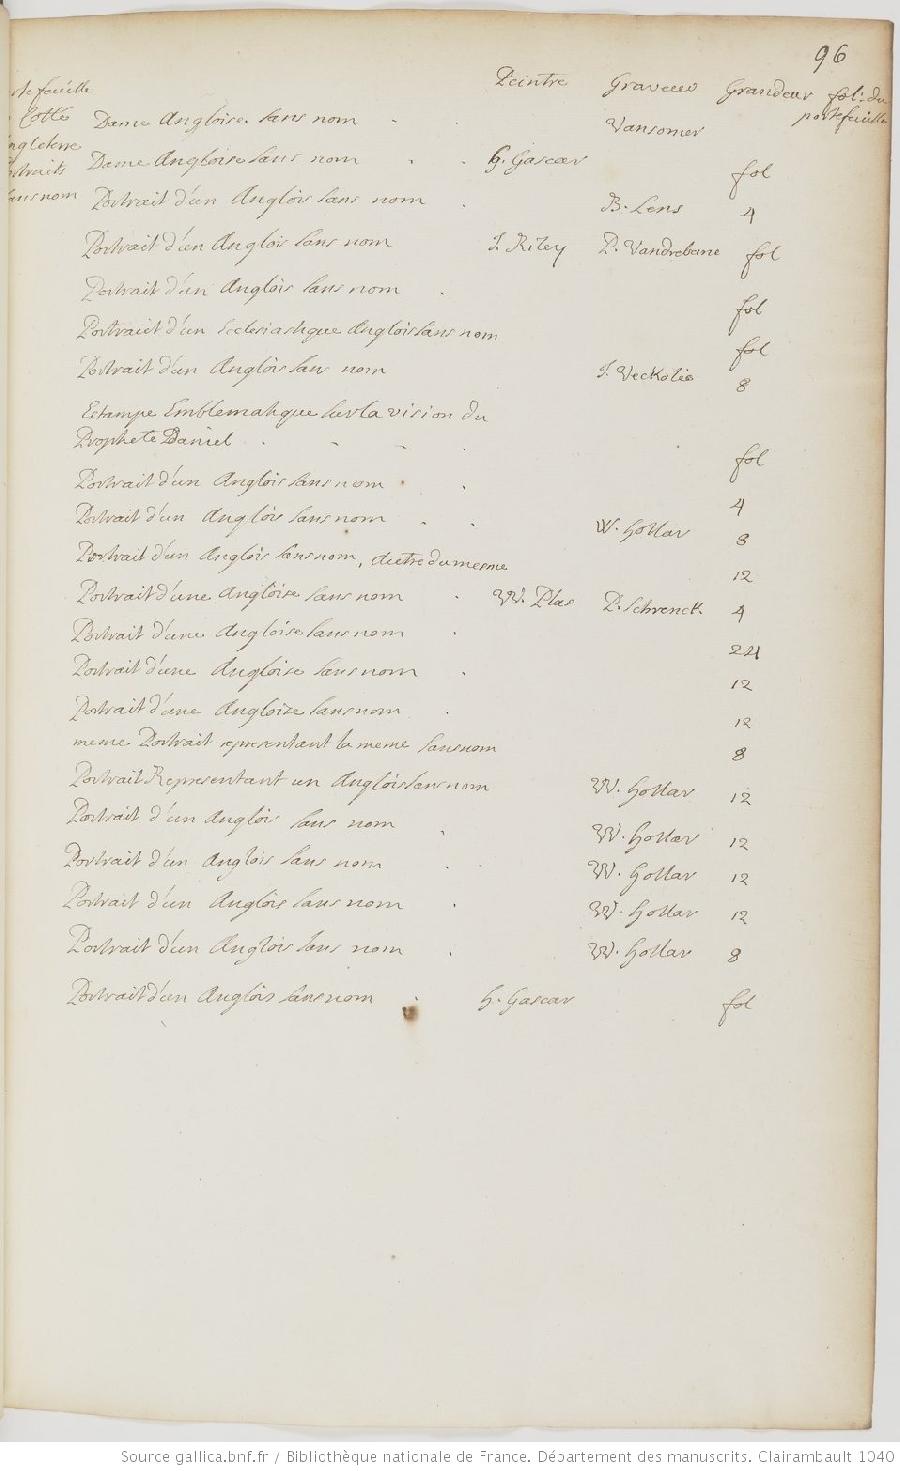 96
Peintre Graveur Grandeur fol. du portefeuille
Dame Angloise sans nom Vansomer
Dame Angloise sans nom H. Gascar fol
Portrait d'un Anglois sans nom B. Lens 4
Portrait d'un Anglois sans nom J. Riley P. Vandrebane fol
Portrait d'un Anglois sans nom fol
Portrait d'un Ecclesiastique Anglois sans nom fol
Portrait d'un Anglois sans nom J. Veckolie 8
Estampe Emblematique sur la vision du
Prophete Daniel fol
Portrait d'un Anglois sans nom 4
Portrait d'un Anglois sans nom W. Hollar 8
Portrait d'un Anglois sans nom, autre du mesme 12
Portrait d'une Angloise sans nom W. Plas P. Schrenck 4
Portrait d'une Angloise sans nom 24
Portrait d'une Angloise sans nom 12
Portrait d'une Angloize sans nom 12
meme Portrait representant la meme sans nom 8
Portrait Representant un Anglois sans nom W. Hollar 12
Portrait d'un Anglois sans nom W. Hollar 12
Portrait d'un Anglois sans nom W. Hollar 12
Portrait d'un Anglois sans nom W. Hollar 12
Portrait d'un Anglois sans nom W. Hollar 8
Portrait d'un Anglois sans nom H. Gascar fol
Source gallica.bnf.fr / Bibliothèque nationale de France. Département des manuscrits. Clairambault 1040